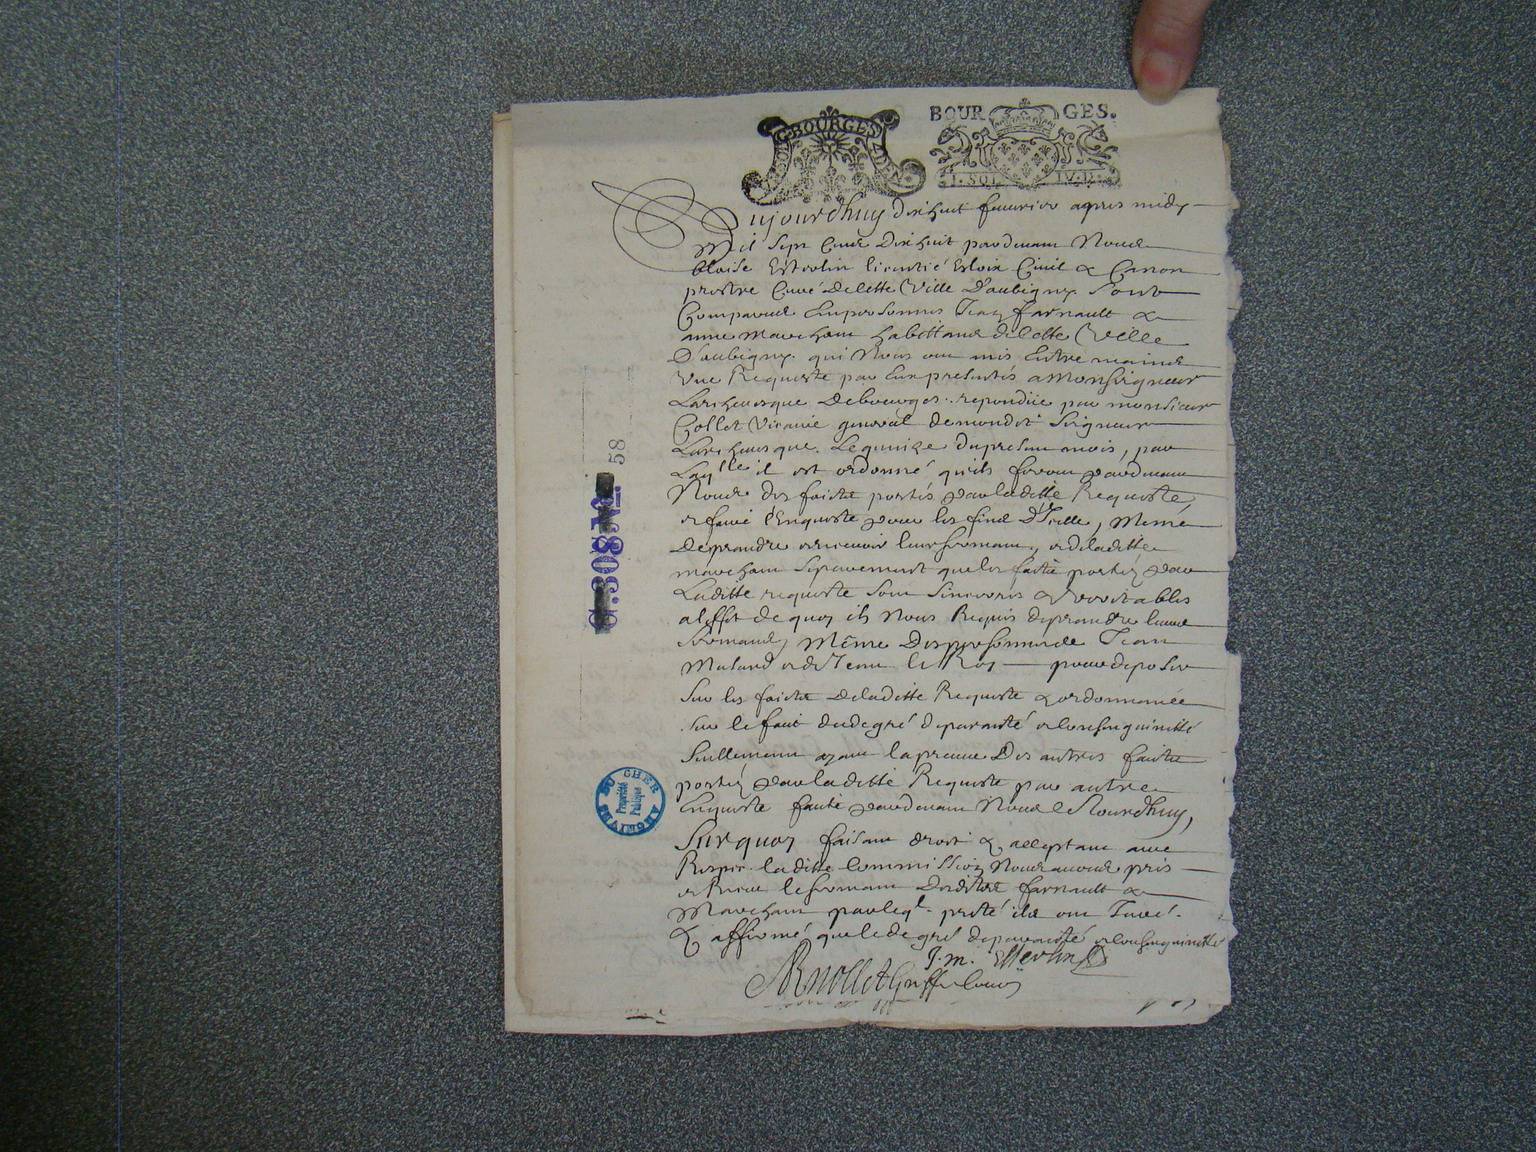 BOURGES
BOURGES.
Aujourdhuy dixhuit feuvrier apres midy
Mil sept cent dixhuit pardevant Nous
blaise licentié Esloix Civil & Canon
prestre Curé de cette Ville D'aubigny Sont
Comparus En personnes Jean farnault &
anne Marchant habittans de cette Ville
D'aubigny qui Nous ont mis Entre mains
Une Requeste par Eux presentés a Monseigneur
Larchevesque De bourges repondüe par monsieur
Collet Vicaire general de mondit Seigneur
Larchevesque Le quinze du presant mois, par
Laqlle il est ordonné quils feront pardevant
Nous des faicts portés par laditte Requeste
& faire l'Enqueste pour les fins D'Icelle, Meme
De prandre & recevoir leur serment, & de laditte
marchant Separement que les faits portéz par
Laditte requeste Sont Sinceres & veritables
a leffet de quoy ils Nous Requis de prandre leurs
Serments, Même Des personnes de Jean
Malard & de le Roy pour deposer
Sur les faicts De laditte Requeste & ordonnance
Sur le fait du degré de paranté & Consanguinitté
Seullement ayant la preuve Des autres faits
portéz par laditte Requeste par autre
Enqueste faite pardevant Nous Ce Jourdhuy,
Surquoy faisant droit & acceptant avec
Respec laditte Commission Nous avons pris
& Receu le serment Desdits farnault &
Marchant par leql. preté ils ont Juré
& affirmé que le degré de paranté & Consanguinitté
J. m.
58
308
DU CHER
Propriété
Publique
ARCHIVES